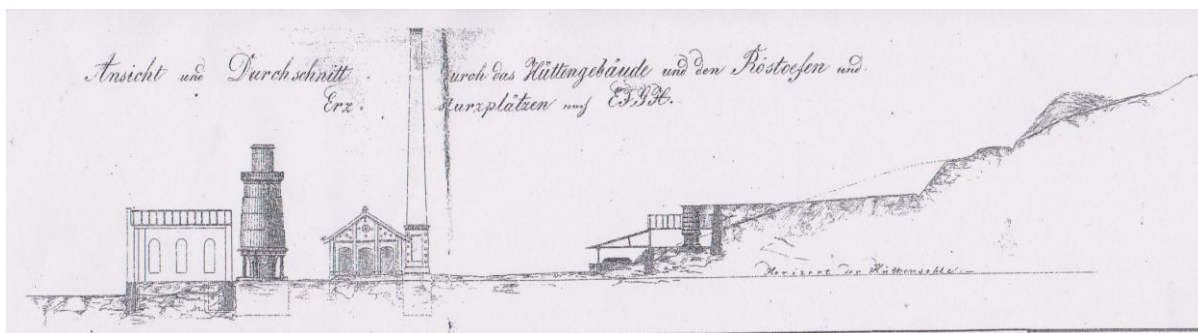 Ansicht und Durchschnitt urch das Hüttengebäude und den Röstoefen und
Erz- sturzplätzen nach E.F.G.H.
Horizont der Hüttensohle.